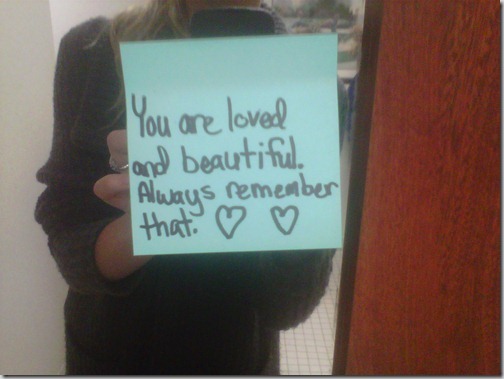 You are loved
and beautiful.
Always remember
that. ♡ ♡